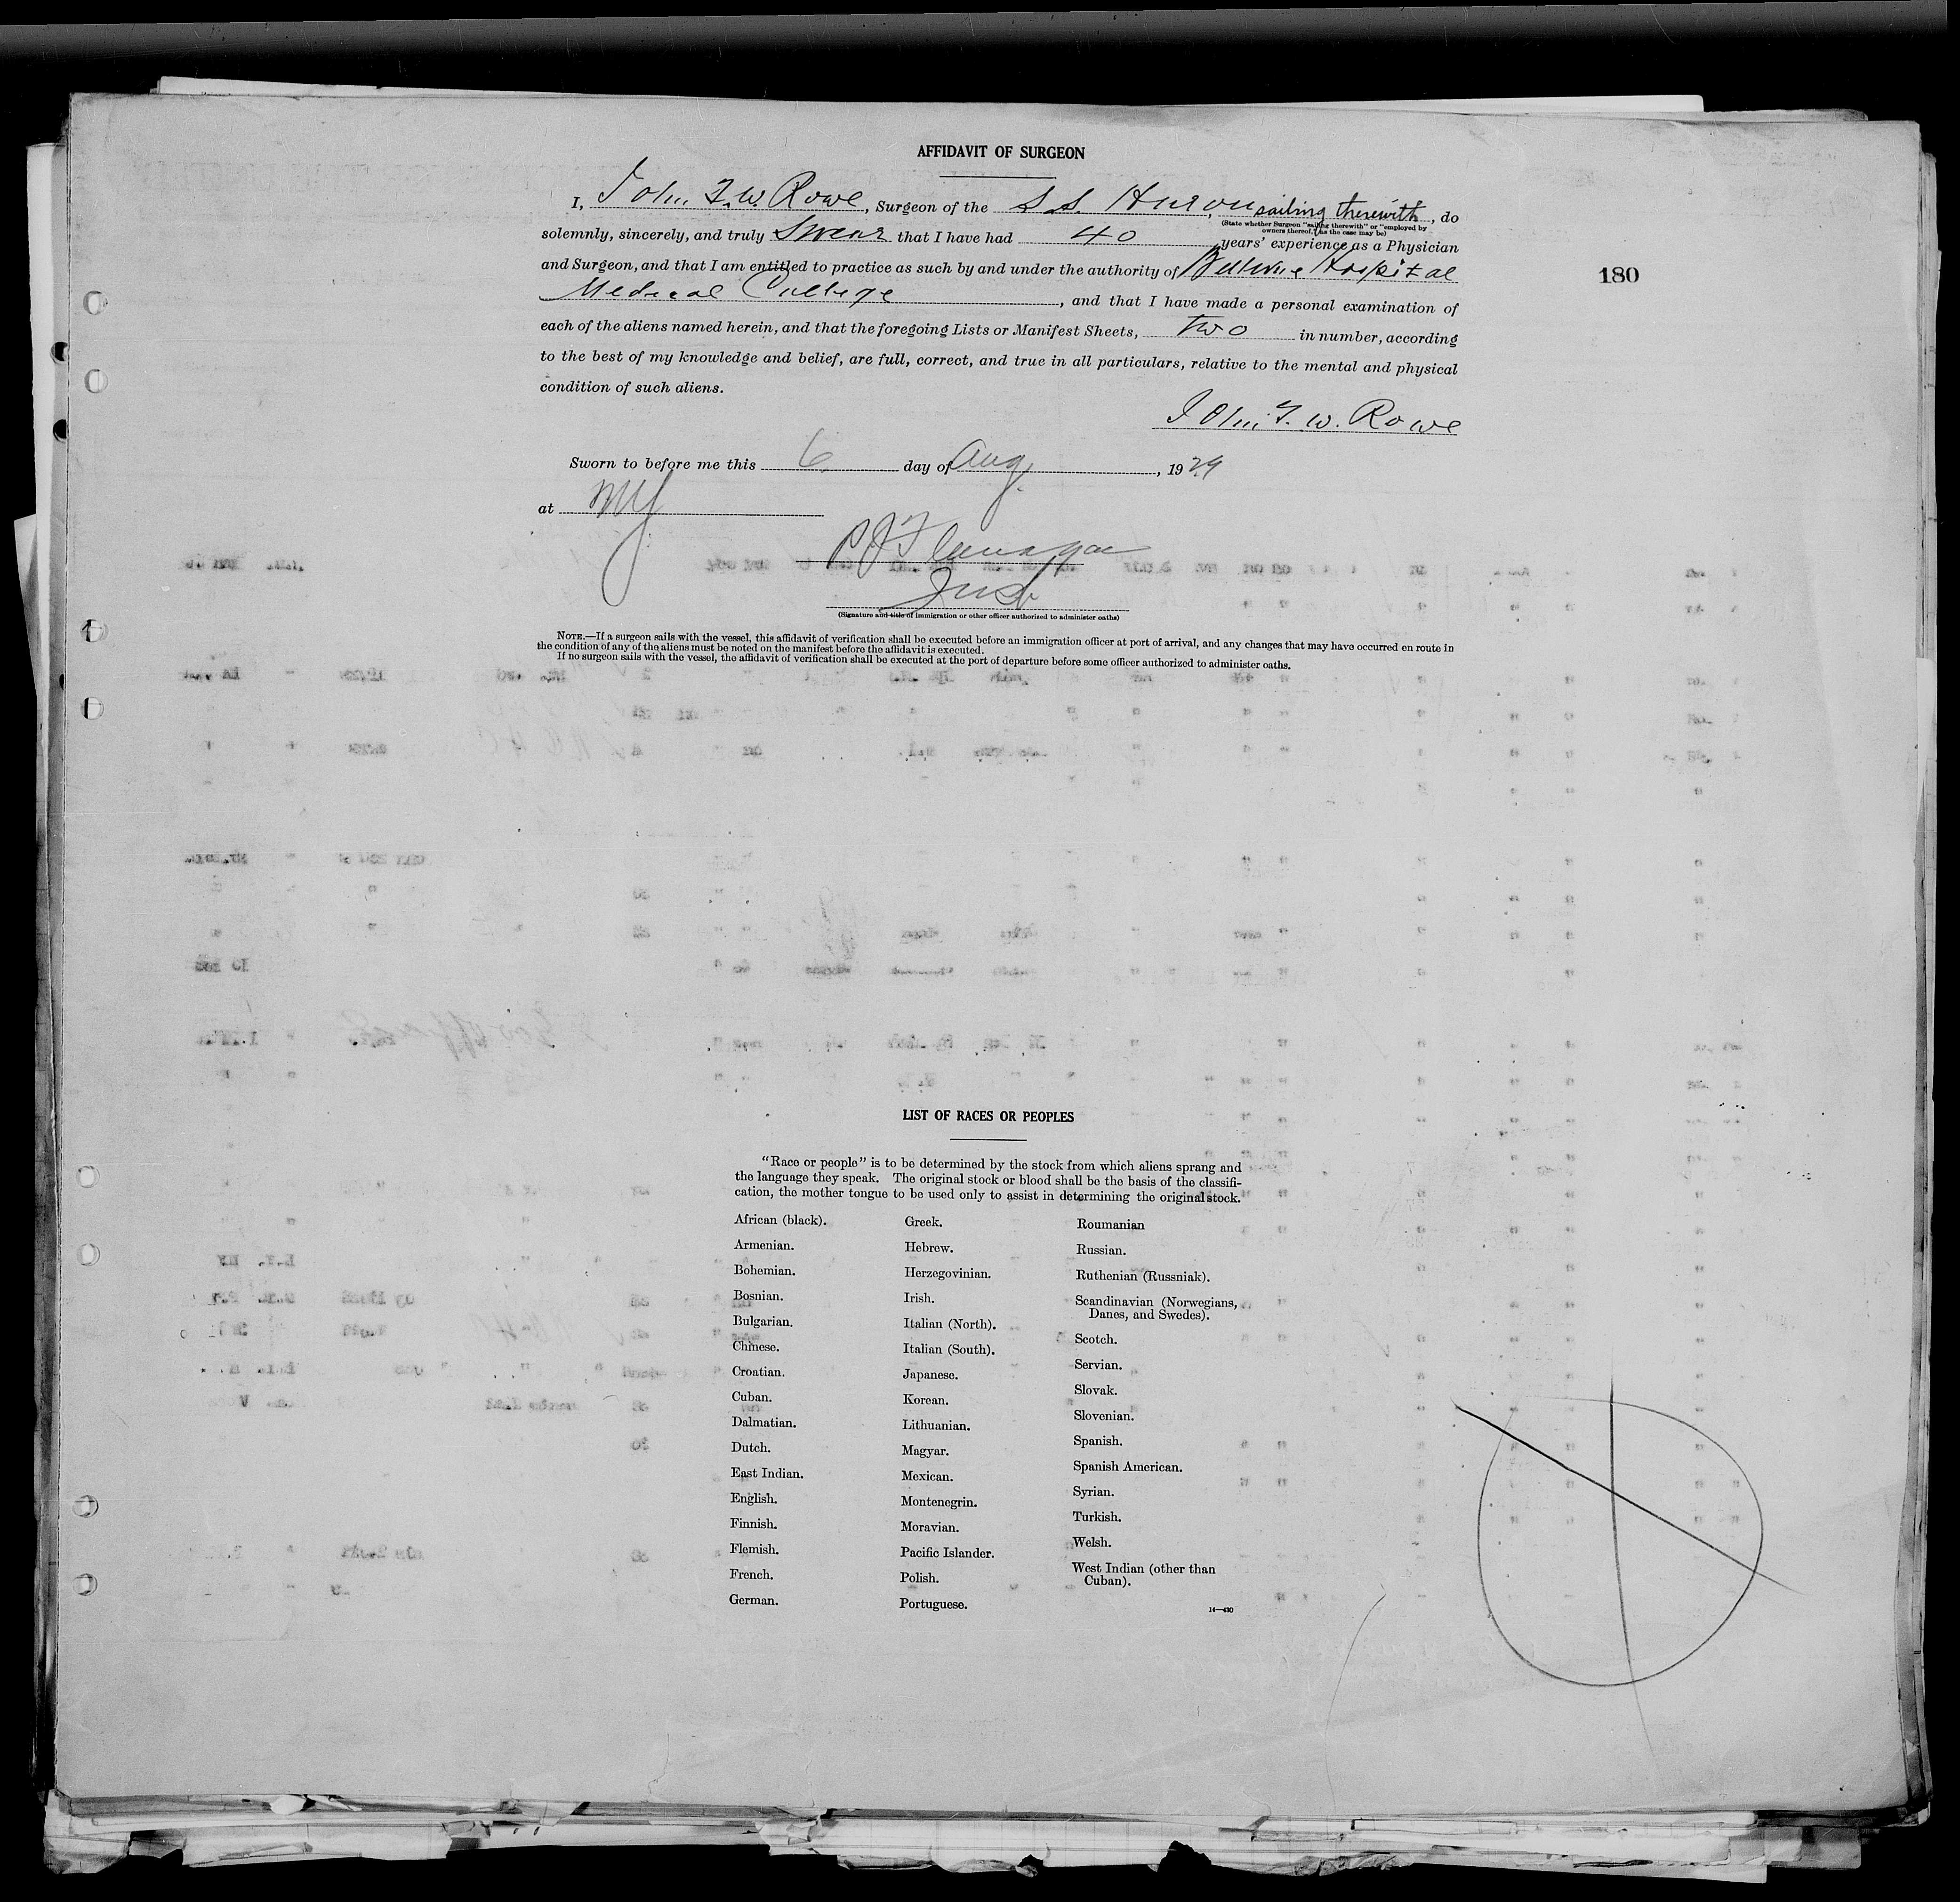 AFFIDAVIT OF SURGEON
I, John F. W. Rowe, Surgeon of the S.S. Huron, sailing therewith, do
(State whether Surgeon "sailing therewith" or "employed by
owners thereof," as the case may be)
solemnly, sincerely, and truly Swear that I have had 40 years' experience as a Physician
and Surgeon, and that I am entitled to practice as such by and under the authority of Bellevue Hospital
Medical College, and that I have made a personal examination of
each of the aliens named herein, and that the foregoing Lists or Manifest Sheets, two in number, according
to the best of my knowledge and belief, are full, correct, and true in all particulars, relative to the mental and physical
condition of such aliens.
John F. W. Rowe
180
Sworn to before me this 6 day of Aug, 1929
at NY
P J Flanagan
Insp
(Signature and title of immigration or other officer authorized to administer oaths)
NOTE.—If a surgeon sails with the vessel, this affidavit of verification shall be executed before an immigration officer at port of arrival, and any changes that may have occurred en route in
the condition of any of the aliens must be noted on the manifest before the affidavit is executed.
If no surgeon sails with the vessel, the affidavit of verification shall be executed at the port of departure before some officer authorized to administer oaths.
LIST OF RACES OR PEOPLES
"Race or people" is to be determined by the stock from which aliens sprang and
the language they speak. The original stock or blood shall be the basis of the classifi-
cation, the mother tongue to be used only to assist in determining the original stock.
African (black).
Armenian.
Bohemian.
Bosnian.
Bulgarian.
Chinese.
Croatian.
Cuban.
Dalmatian.
Dutch.
East Indian.
English.
Finnish.
Flemish.
French.
German.
Greek.
Hebrew.
Herzegovinian.
Irish.
Italian (North).
Italian (South).
Japanese.
Korean.
Lithuanian.
Magyar.
Mexican.
Montenegrin.
Moravian.
Pacific Islander.
Polish.
Portuguese.
Roumanian
Russian.
Ruthenian (Russniak).
Scandinavian (Norwegians,
Danes, and Swedes).
Scotch.
Servian.
Slovak.
Slovenian.
Spanish.
Spanish American.
Syrian.
Turkish.
Welsh.
West Indian (other than
Cuban).
14—430